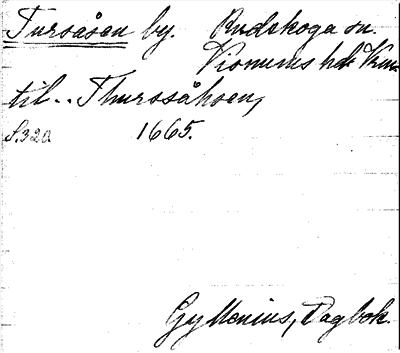 Tursåsen by. Rudskoga sn.
Visnums hd Vrm
til.. Thurssåhsen,
S.320. 1665.
Gyllenius, Dagbok.